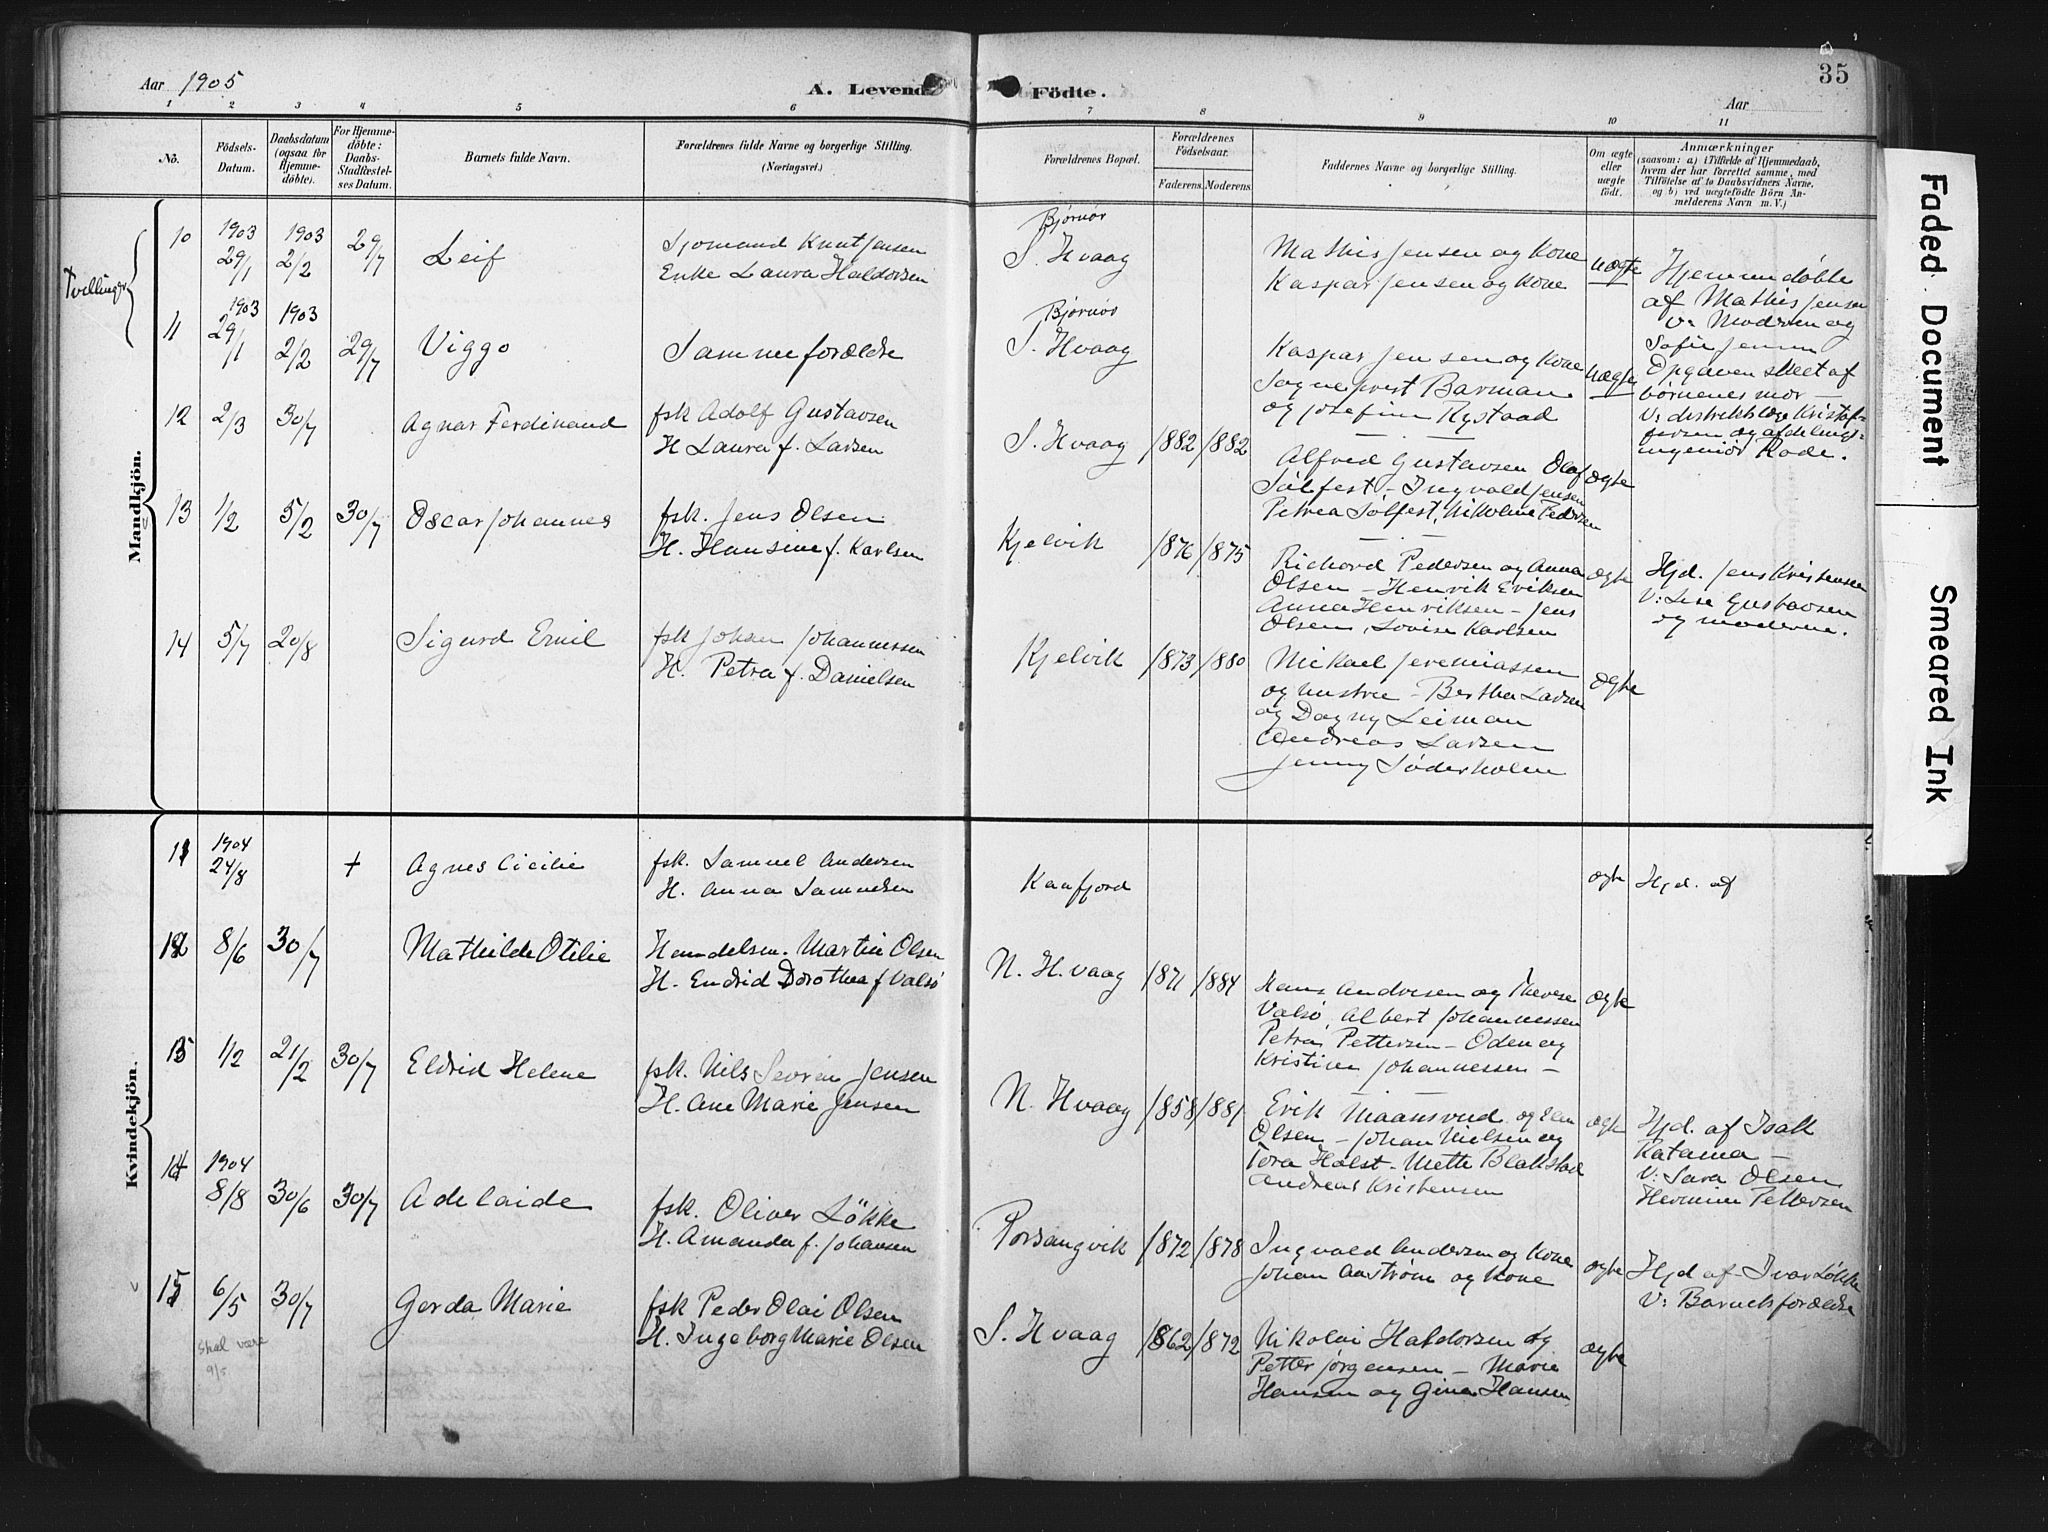 Aar 1905
A. Levende
Födte.
Aar
35
1 2 3 4 5 6 7 8 9 10 11
No.
Födsels-Datum.
Daabsdatum (ogsaa for Hjemmedöbte).
For Hjemmedöbte: Daabs-Stadfæstelses Datum.
Barnets fulde Navn.
Forældrenes fulde Navne og borgerlige Stilling.
(Næringsvei.)
Forældrenes Bopæl.
Forældrenes Födselsaar.
Faderens. Moderens.
Faddernes Navne og borgerlige Stilling.
Om ægte eller uægte födt.
Anmærkninger
(saasom: a) i Tilfælde af Hjemmedaab,
hvem der har forrettet samme, med
Tilföielse af to Daabsvidners Navne.
og b) ved uægtefödte Börn An-
melderens Navn m. V.)
Mandkjön.
Tvillinger
10 1903 29/1 1903 2/2 29/7 Leif
Sjømand Knut Jensen
Enke Laura Haldorsen
Bjørnør
S. Hvaag
Mathis Jensen og Kone
Kaspar Jensen og Kone
uægte
Hjemmedøbte
af Mathis Jensen
V: Modren og
Sofie Jensen
Opgaven skeet af
børnenes mor
V: distriktslæge Kristof-
fersen og afdelings-
ingeniør Rode.
11 1903 29/1 1903 2/2 29/7 Viggo
Samme forældre
Bjørnør
S. Hvaag
Kaspar Jensen og Kone
Sogneprest Barman
og Josefine Rystaad
uægte
12 2/3 30/7 Agnar Ferdinand
fsk Adolf Gustavsen
H Laura f. Larsen
S. Hvaag 1882 1882
Alfred Gustavsen Olaf
Sølfest - Ingvald Jensen
Petrea Sølfest, Nikoline Pedersen
ægte
13 1/2 5/2 30/7 Oscar Johannes
fsk. Jens Olsen
H. Hansine f. Karlsen
Kjelvik 1876 1875
Richard Pedersen og Anna
Olsen - Henrik Eriksen
Anna Henriksen - Jens
Olsen, Lovise Karlsen
ægte
Hjd. Jens Kristensen
V: Lise Gustavsen
og moderen.
14 5/7 20/8 Sigurd Emil
fsk Johan Johannessen
H. Petra f. Danielsen
Kjelvik 1873 1880
Mikael Jeremiassen
og hustru - Bertha Larsen
og Dagny Leiman
Andreas Larsen
Jenny Søderholm
ægte
Kvindekjön.
11 1904 24/8 + Agnes Cicilie
fsk. Samuel Andersen
H. Anna Samuelsen
Kaafjord
ægte
Hjd. af
12 8/6 30/7 Mathilde Otilie
Handelsm. Martin Olsen
H. Endrid Dorothea f Valsø
N. Hvaag 1871 1884
Hans Andresen og Therese
Valsø, Albert Johannessen
Petra Pettersen - Oden og
Kristine Johannessen -
ægte
13 1/2 21/2 30/7 Eldrid Helene
fsk. Nils Severin Jensen
H. Ane Marie Jensen
N. Hvaag 1858 1881
Erik Maansrud og
Olsen - Johan Nielsen og
Tora Holst - Mette Blakstad
Andreas Kristensen
ægte
Hjd. af Isak
Katama -
V: Sara Olsen
Hermine Pettersen
14 1904 8/8 30/6 30/7 Adelaide
fsk. Oliver Løkke
H. Amanda f. Johansen
Porsangvik 1872 1878
Ingvald Andersen og Kone
Johan Aastrøm og Kone
ægte
Hjd af Ivar Løkke
V: Barnets forældre
15 6/5 30/7 Gerda Marie
skal være 9/5
fsk Peder Olai Olsen
H. Ingeborg Marie Olsen
S. Hvaag 1862 1872
Nikolai Haldorsen og
Petter Jørgensen - Marie
Hansen og Gina Hansen
ægte
Faded Document
Smeared Ink